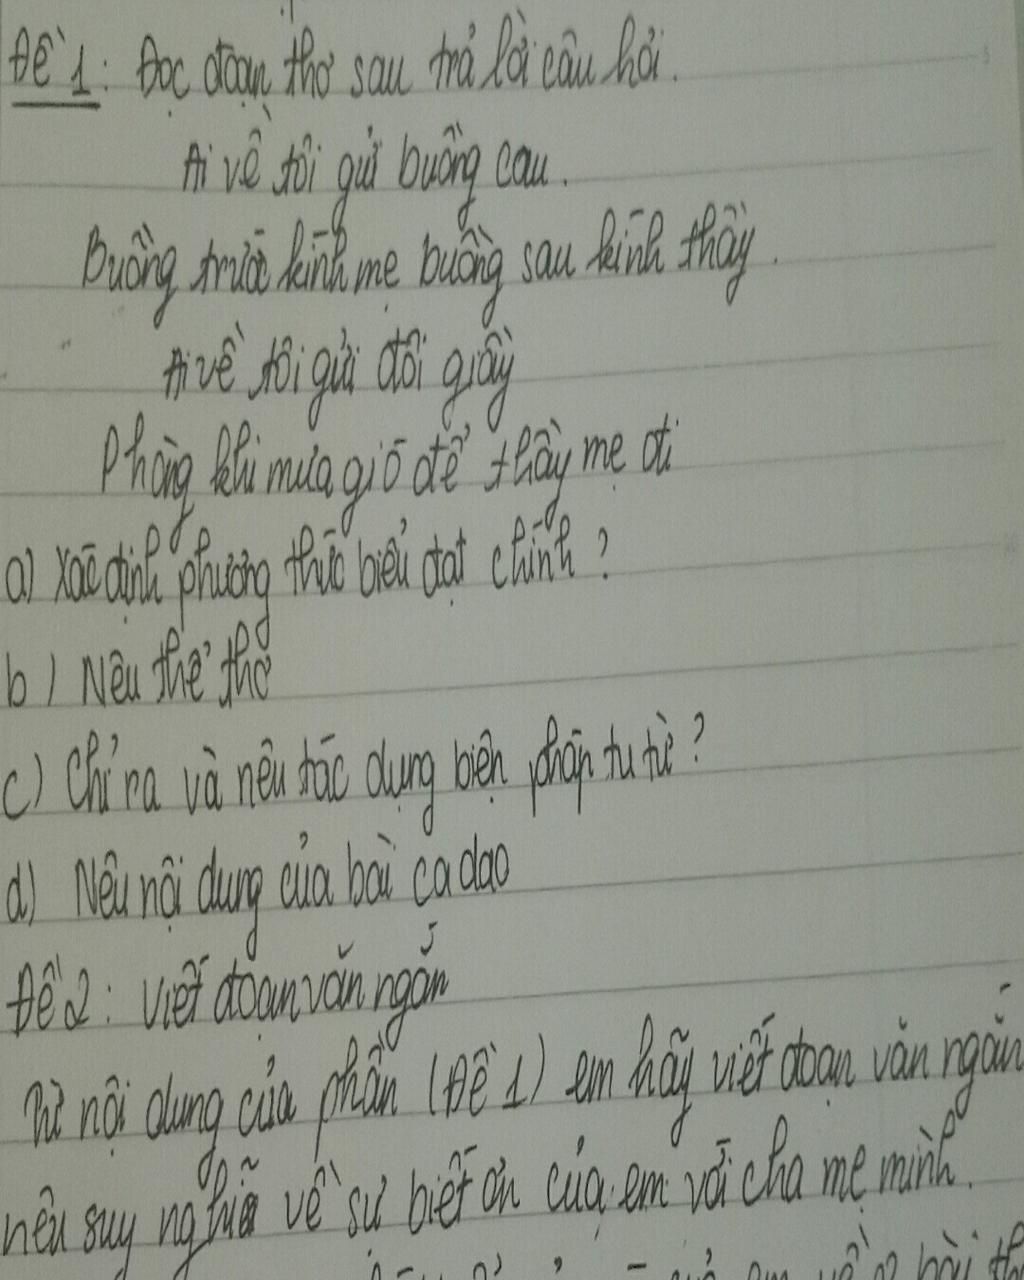 Đề 1: Đọc đoạn thơ sau trả lời câu hỏi.
Ai về tôi gửi buồng cau.
Buồng trước kính mẹ buồng sau kính thầy.
Ai về tôi gửi đôi giầy
Phòng khi mưa gió để thầy mẹ đi
a) Xác định phương thức biểu đạt chính?
b) Nêu thể thơ
c) Chỉ ra và nêu tác dụng biện pháp tu từ?
d) Nêu nội dung của bài ca dao
Đề 2: Viết đoạn văn ngắn
Từ nội dung của phần (Đề 1) em hãy viết đoạn văn ngắn
nêu suy nghĩ về sự biết ơn của em với cha mẹ mình.